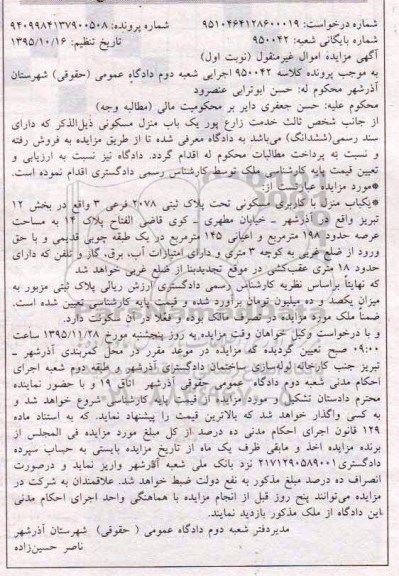 شماره درخواست: ۹۵۱۰۴۶۴۱۲۸۶۰۰۰۱۹ شماره پرونده: ۹۴۰۹۹۸۴۱۳۷۹۰۰۵۰۸
شماره بایگانی شعبه: ۹۵۰۰۴۲ تاریخ تنظیم: ۱۳۹۵/۱۰/۱۶
آگهی مزایده اموال غیرمنقول (نوبت اول)
به موجب پرونده کلاسه ۹۵۰۰۴۲ اجرایی شعبه دوم دادگاه عمومی (حقوقی) شهرستان
آذرشهر محکوم له: حسن ابوترابی عنصرود
محکوم علیه: حسن جعفری دایر بر محکومیت مالی (مطالبه وجه)
از جانب شخص ثالث خدمت زارع پور یک باب منزل مسکونی ذیل‌الذکر که دارای
سند رسمی(ششدانگ) می‌باشد به دادگاه معرفی شده تا از طریق مزایده به فروش رفته
و نسبت به پرداخت مطالبات محکوم له اقدام گردد. دادگاه نیز نسبت به ارزیابی و
تعیین قیمت پایه کارشناسی ملک توسط کارشناس رسمی دادگستری اقدام نموده است.
*مورد مزایده عبارتست از:
*یکباب منزل با کاربری مسکونی تحت پلاک ثبتی ۲۰۷۸ فرعی ۳ واقع در بخش ۱۲
تبریز واقع در آذرشهر ـ خیابان مطهری ـ کوی قاضی الفتاح پلاک ۱۴ به مساحت
عرصه حدود ۱۹۸ مترمربع و اعیانی ۱۴۵ مترمربع در یک طبقه چوبی قدیمی و با حق
ورود از ضلع غربی به کوچه ۳ متری و دارای امتیازات آب، برق، گاز و تلفن که دارای
حدود ۱۸ متری عقب‌کشی در موقع تجدیدبنا از ضلع غربی خواهد شد
که نهایتاً براساس نظریه کارشناس رسمی دادگستری ارزش ریالی پلاک ثبتی مزبور به
میزان یکصد و ده میلیون تومان برآورد شده و قیمت پایه کارشناسی تعیین شده است.
ضمناً ملک مورد مزایده در تصرف مالک بوده و فعلا در آن سکونت دارد.
و با درخواست وکیل خواهان وقت مزایده به روز پنجشنبه مورخ ۱۳۹۵/۱۱/۲۸ ساعت
۰۹:۰۰ صبح تعیین گردیده که مزایده در موعد مقرر در محل کمربندی آذرشهر ـ
تبریز جنب کارخانه لوله‌سازی ساختمان دادگستری آذرشهر و طبقه دوم شعبه اجرای
احکام مدنی شعبه دوم دادگاه عمومی حقوقی آذرشهر اتاق ۱۹ و با حضور نماینده
محترم دادستان تشکیل و مورد مزایده از قیمت پایه کارشناسی شروع خواهد شد و
به کسی واگذار خواهد شد که بالاترین قیمت را پیشنهاد نماید. که به استناد ماده
۱۲۹ قانون اجرای احکام مدنی ده درصد از کل مبلغ مورد مزایده فی المجلس از
برنده مزایده اخذ و مابقی ظرف یک ماه از تاریخ مزایده بایستی به حساب سپرده
دادگستری ۲۱۷۱۲۹۰۵۸۹۰۰۱ نزد بانک ملی شعبه آذرشهر واریز نماید و درصورت
انصراف ده درصد مبلغ مذکور به نفع دولت ضبط خواهد شد. علاقمندان به شرکت در
مزایده می‌توانند پنج روز قبل از انجام مزایده با هماهنگی واحد اجرای احکام مدنی
این دادگاه از ملک مذکور بازدید نمایند.
مدیردفتر شعبه دوم دادگاه عمومی ( حقوقی) شهرستان آذرشهر
ناصر حسین‌زاده